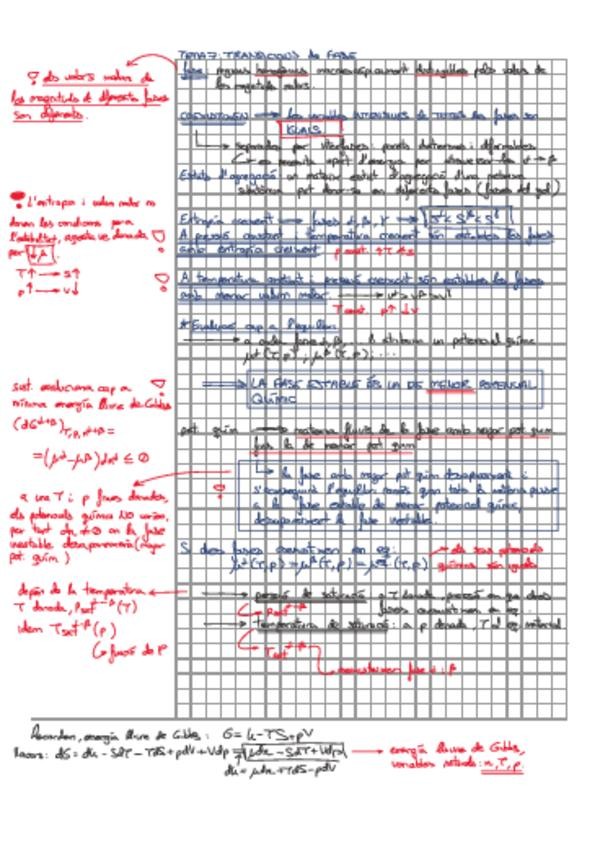 TEMA 7: TRANSICIONS de FASE
fase: regions homogènies macroscòpicament distingibles pels valors de
les magnituds molars.
els valors molars de
les magnituds de diferents fases
són diferents.
COEXISTEIXEN → les variables INTENSIVES de TOTES les fases són
IGUALS
separades per interfases: parets diatermes i deformables
es necessita aport d'energia per
Estats d'agregació: un mateix estat d'agregació d'una mateixa
substància pot donar-se en diferents fases (fases del gel)
L'entropia i volum molar no
donen les condicions para
l'estabilitat, aquesta ve donada
per ↓μ
T↑ → s↑
p↑ → v↓
Entropia creixent → fases α, β, γ → s^α < s^β < s^γ
A pressió constant i temperatura creixent són estables les fases
amb entropia creixent p const. ↑T ↑s
A temperatura constant i pressió creixent són estables les fases
amb menor volum molar. → v^α > v^β > v^γ
T const. p↑ ↓v
* Evolució cap a l'equilibri
a cada fase α, β, ... li atribuïm un potencial químic
μ^α(T,p); μ^β(T,p); ...
LA FASE ESTABLE ÉS LA DE MENOR POTENCIAL
QUÍMIC
sist. evoluciona cap a
mínima energia lliure de Gibbs
(dG^{α+β})_{T,p,α+β} =
= (μ^α - μ^β)dn^α ≤ 0
pot. quím → matèria flueix de la fase amb major pot quim
fins la de menor pot quim
la fase amb major pot quím desapareixerà i
s'aconseguirà l'equilibri només quan tota la matèria passe
a la fase estable de menor potencial químic,
desapareixent la fase inestable.
a una T i p fixes donades,
els potencials químics NO varien,
per tant dn ≠ 0 on la fase
inestable desapareixerà (major
pot. quím)
Si dues fases coexisteixen en eq:
μ^α(T,p) = μ^β(T,p) = (T,p)
els seus potencials
químics són iguals
depèn de la temperatura
T donada, p_sat^{α-β}(T)
idem T_sat^{α-β}(p)
funció de p
pressió de saturació: a T donada, pressió en que dues
fases coexisteixen en eq.
p_sat^{α-β}
temperatura de saturació: a p donada, T
T_sat^{α-β}
coexisteixen fase α i β
Recorden, energia lliure de Gibbs: G = U - TS + pV
Llavors: dG = dU - SdT - TdS + pdV + Vdp = μdn - SdT + Vdp
dU = μdn + TdS - pdV
energia lliure de Gibbs,
variables naturals: n, T, p.